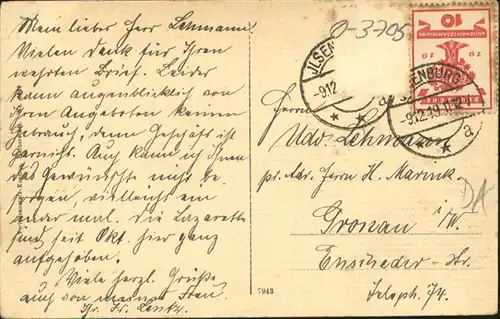 Mein lieber Herr Lehmann!
Vielen Dank für Ihren
werten Brief. Leider
kann augenblicklich von
Ihren Angeboten keinen
Gebrauch, denn Geschäft ist
garnicht. Auch kann ich Ihnen
das Gewünscht nicht be-
sorgen, vielleicht ein
ander mal. Die Lazarette
sind seit Okt. hier ganz
aufgehoben.
Viele herzl. Grüße
auch von meiner Frau
Ihr Fr. Lentz.
7943
O-3705
ILSEN
-9.12
a
ENBURG
-9.12.19
a
10
Herrn
Udo. Lehmann
pr. Adr. Herrn H.
Gronau i/W.
Enscheder-Str.
Teleph. 74.
DA